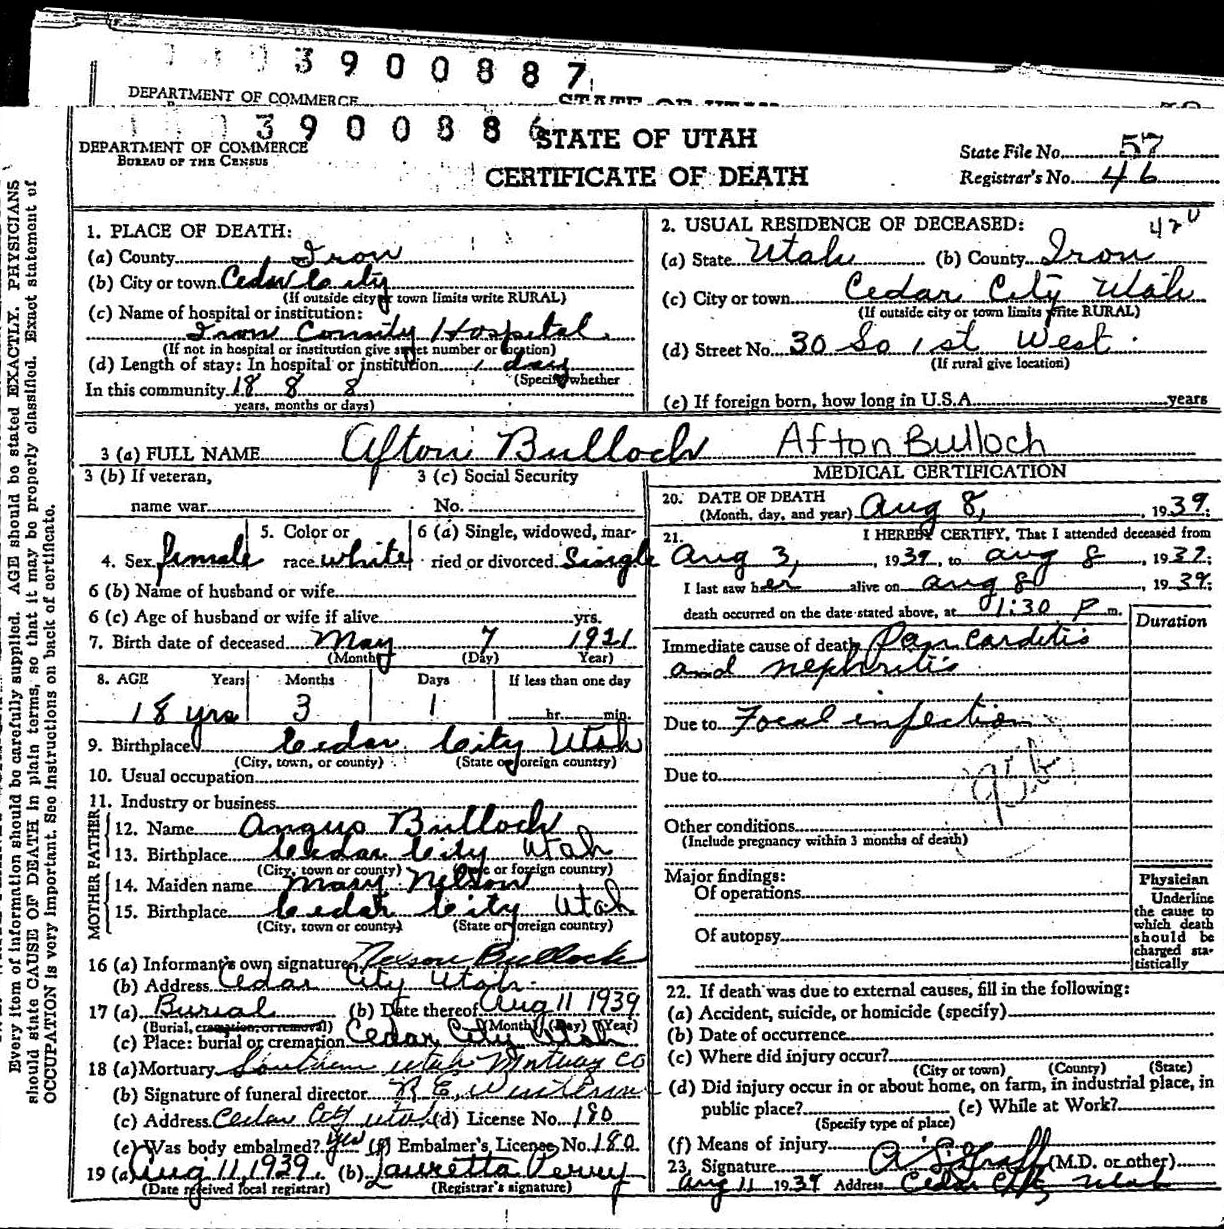 3900887
DEPARTMENT OF COMMERCE
STATE OF UTAH
3900886
DEPARTMENT OF COMMERCE
BUREAU OF THE CENSUS
STATE OF UTAH
CERTIFICATE OF DEATH
State File No. 57
Registrar's No. 46
Every item of information should be carefully supplied. AGE should be stated EXACTLY. PHYSICIANS
should state CAUSE OF DEATH in plain terms, so that it may be properly classified. Exact statement of
OCCUPATION is very important. See instructions on back of certificate.
1. PLACE OF DEATH:
(a) County Iron
(b) City or town Cedar City
(If outside city or town limits write RURAL)
(c) Name of hospital or institution:
Iron County Hospital
(If not in hospital or institution give street number or location)
(d) Length of stay: In hospital or institution 1 day
(Specify whether
In this community 18 8 8
years, months or days)
2. USUAL RESIDENCE OF DECEASED:
(a) State Utah (b) County Iron
(c) City or town Cedar City Utah
(If outside city or town limits write RURAL)
(d) Street No. 30 So 1st West
(If rural give location)
(e) If foreign born, how long in U.S.A. years
3 (a) FULL NAME Afton Bulloch Afton Bulloch
3 (b) If veteran,
name war
3 (c) Social Security
No.
4. Sex female
5. Color or
race white
6 (a) Single, widowed, mar-
ried or divorced Single
6 (b) Name of husband or wife
6 (c) Age of husband or wife if alive yrs.
7. Birth date of deceased May 7 1921
(Month) (Day) Year)
8. AGE Years Months Days If less than one day
18 yrs 3 1 hr. min.
9. Birthplace Cedar City Utah
(City, town, or county) (State or foreign country)
10. Usual occupation
11. Industry or business
FATHER
12. Name Angus Bulloch
13. Birthplace Cedar City Utah
(City, town or county) (State or foreign country)
MOTHER
14. Maiden name Mary Nelson
15. Birthplace Cedar City Utah
(City, town or county) (State or foreign country)
16 (a) Informant's own signature Nelson Bulloch
(b) Address Cedar City Utah
17 (a) Burial (b) Date thereof Aug 11 1939
(Burial, cremation, or removal) (Month) (Day) (Year)
(c) Place: burial or cremation Cedar City Utah
18 (a) Mortuary Southern Utah Mortuary Co
(b) Signature of funeral director
(c) Address Cedar City Utah (d) License No. 180
(e) Was body embalmed? yes (f) Embalmer's License No. 180
19 (a) Aug 11, 1939. (b) Lauretta Perry
(Date received local registrar) (Registrar's signature)
MEDICAL CERTIFICATION
20. DATE OF DEATH
(Month, day, and year) Aug 8, 1939.
21. I HEREBY CERTIFY, That I attended deceased from
Aug 3, 1939, to Aug 8, 1939.
I last saw her alive on Aug 8, 1939.
death occurred on the date stated above, at 1:30 P m.
Duration
Immediate cause of death Pancarditis
and nephritis
Due to Focal infection
Due to
Other conditions
(Include pregnancy within 3 months of death)
Major findings:
Of operations
Of autopsy
Physician
Underline
the cause to
which death
should be
charged sta-
tistically
22. If death was due to external causes, fill in the following:
(a) Accident, suicide, or homicide (specify)
(b) Date of occurrence
(c) Where did injury occur?
(City or town) (County) (State)
(d) Did injury occur in or about home, on farm, in industrial place, in
public place? (e) While at Work?
(Specify type of place)
(f) Means of injury
23. Signature (M.D. or other)
Aug 11 1939 Address Cedar City Utah